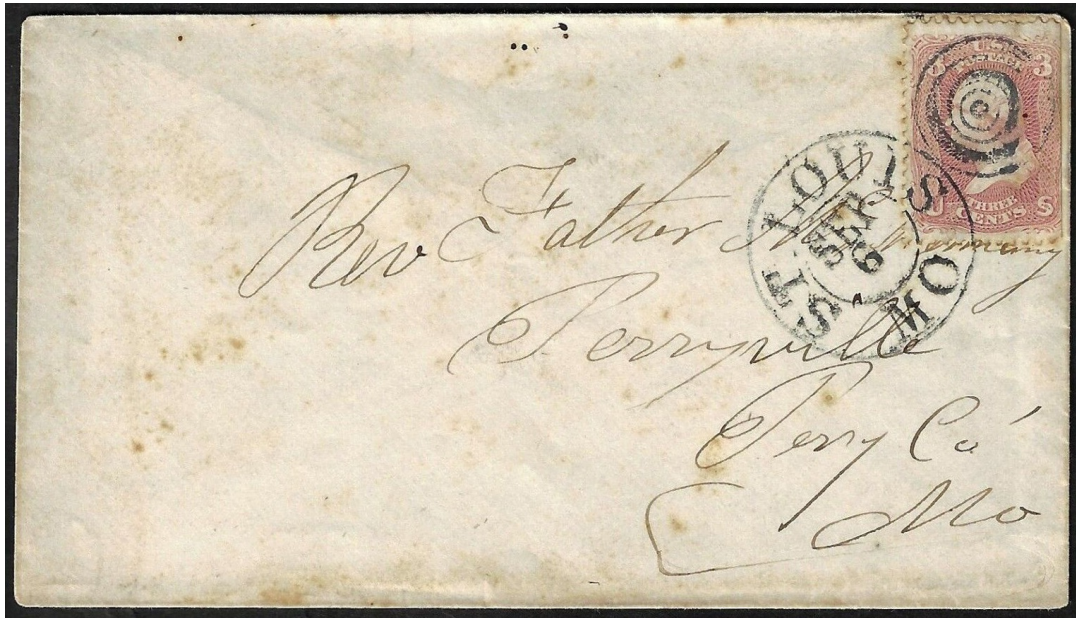 U.S.
POSTAGE
3
THREE
CENTS
U S
ST. LOUIS MO
SEP
6
Rev Father
Perryville
Perry Co
Mo